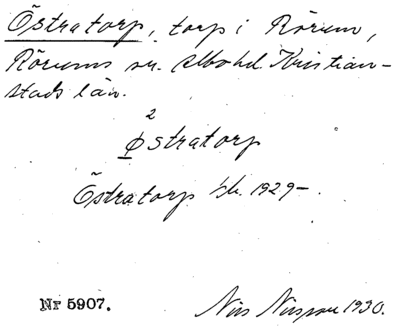 Östratorp, torp i Rörum,
Rörums sn. Albo hd. Kristian-
stads län.
2
østratorp
Östratorp 1929-
Nr 5907.
Nils Nilsson 1930.